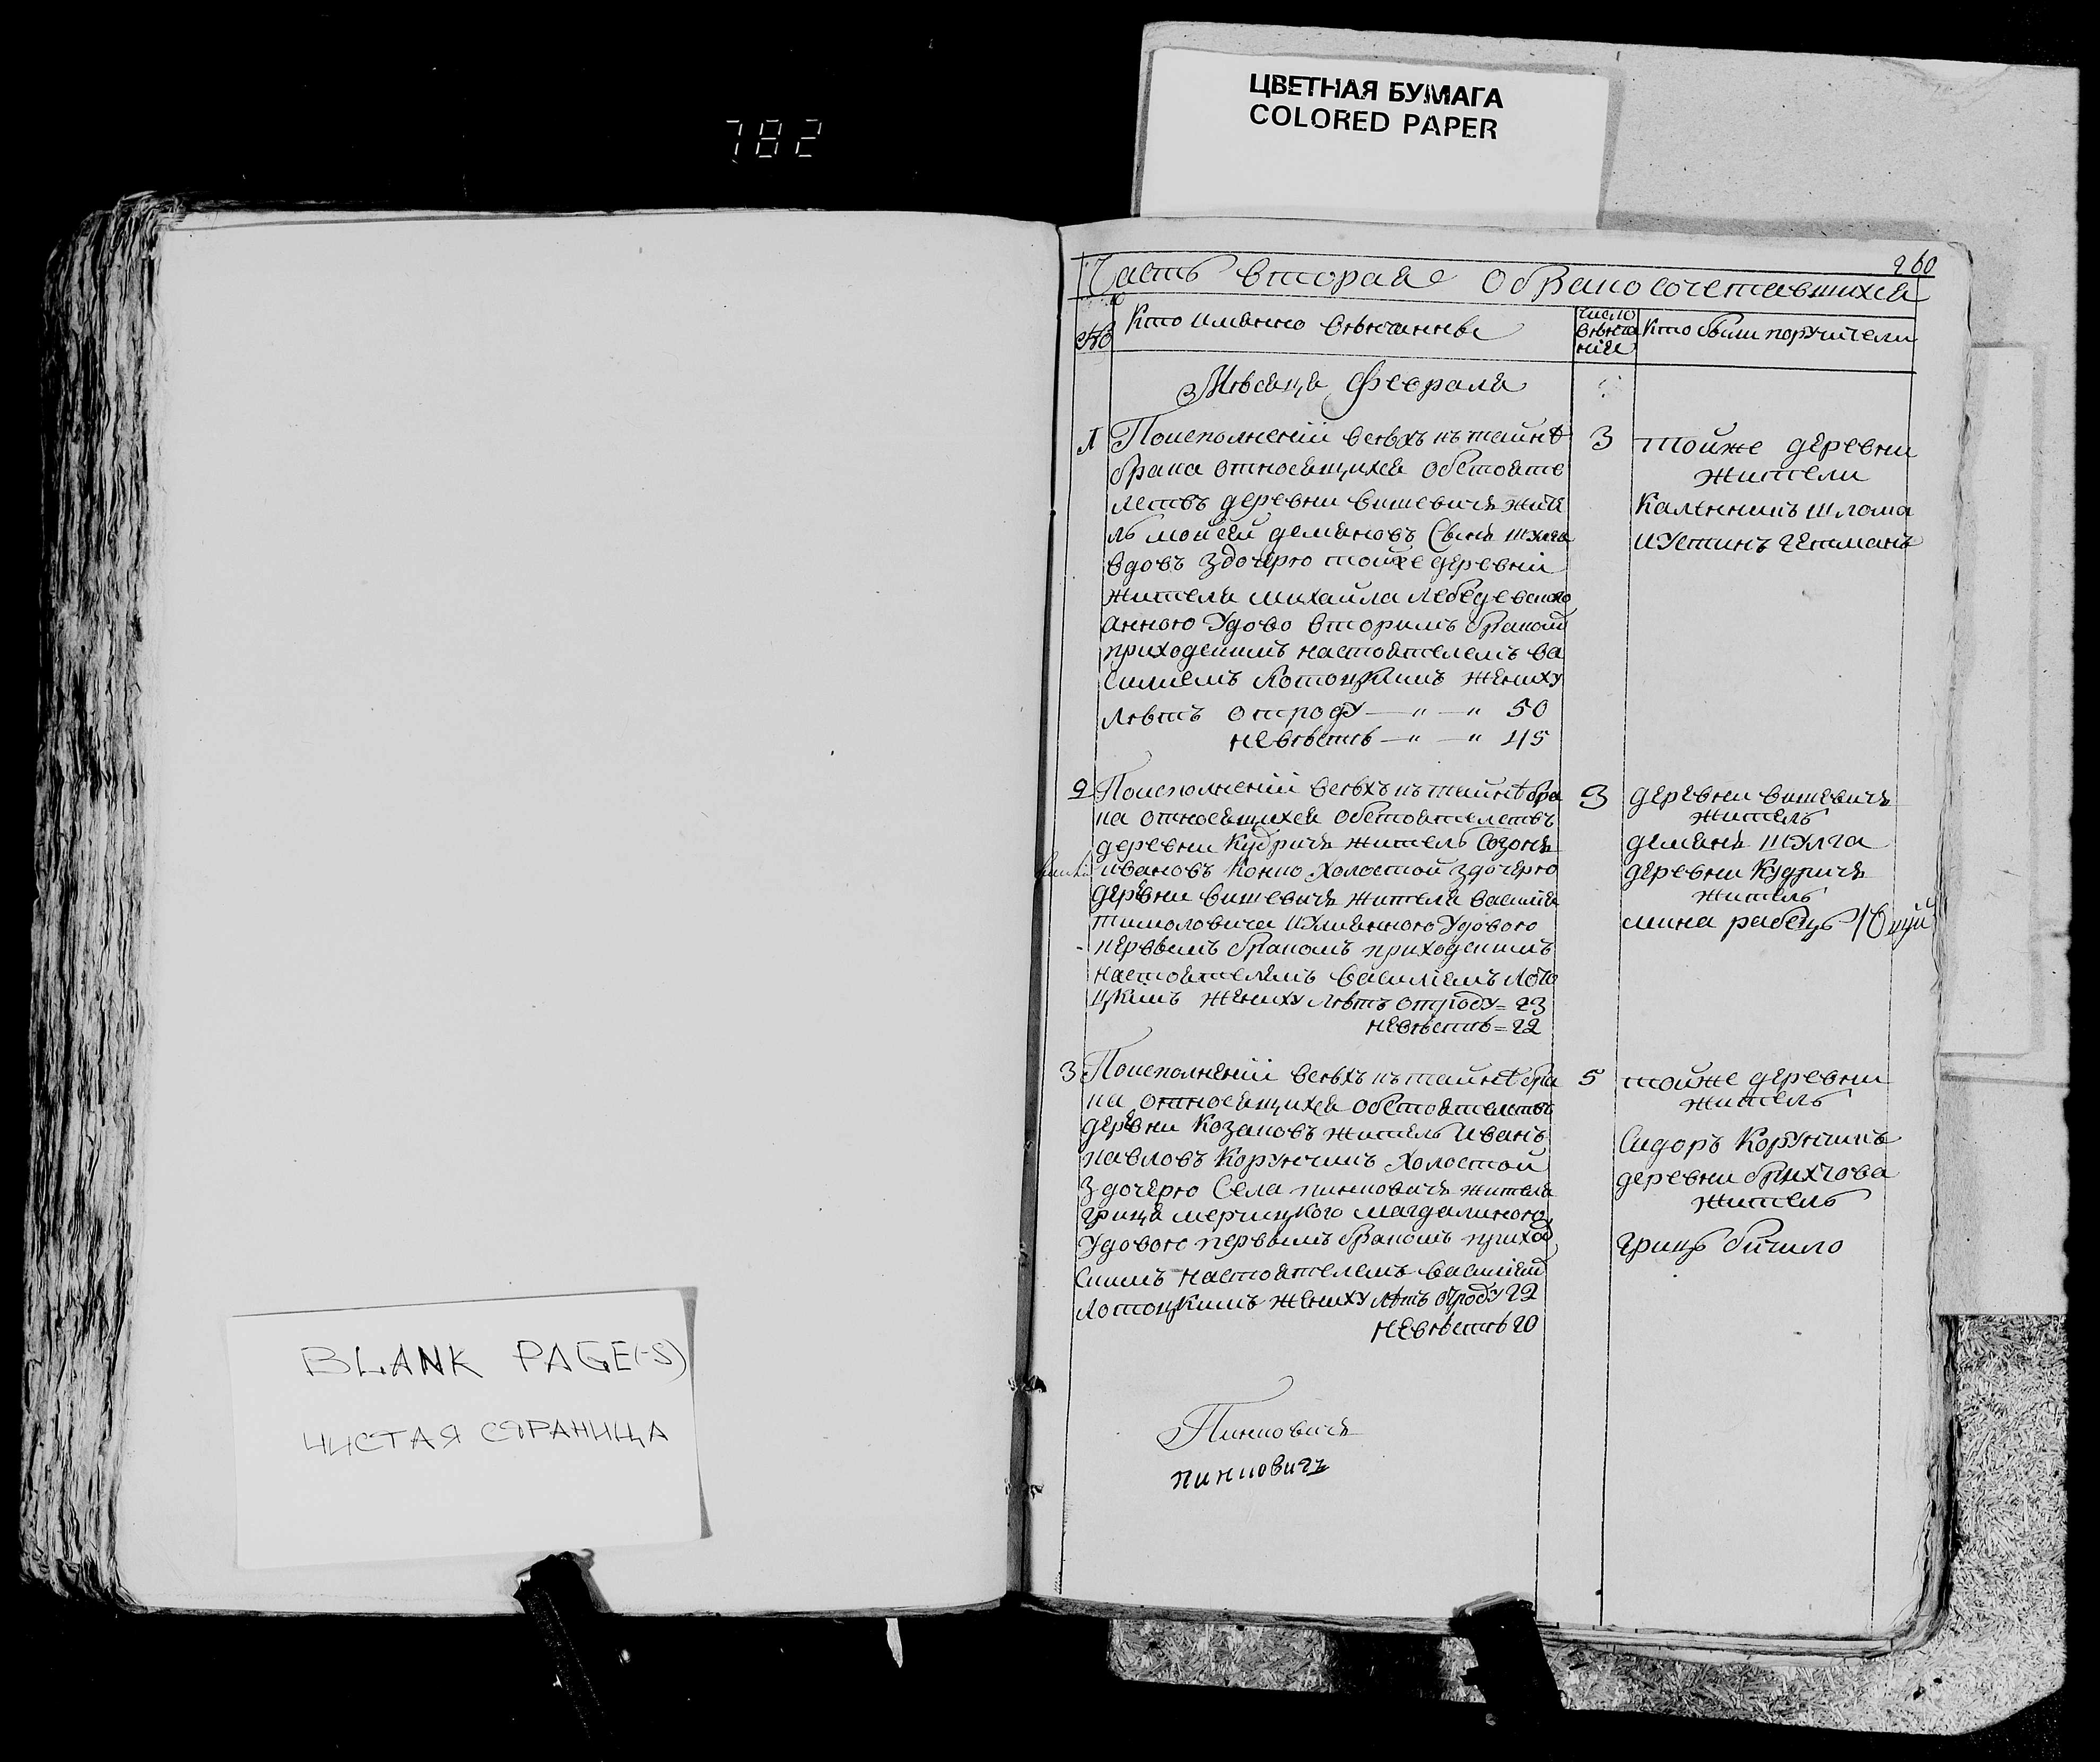 782
ЦВЕТНАЯ БУМАГА
COLORED PAPER
BLANK PAGE(-S)
ЧИСТАЯ СТРАНИЦА
260
Часть вторая о бракосочетавшихся
№
Кто имянно венчанны
число венча нія
Кто были поручители
Мѣсяца Февраля
1
По исполненіи всѣхъ къ тайнѣ
брака относящихся обстояте
лствъ деревни вишевичъ жите
ль мойсей демяновъ Сынъ шуляга
вдовъ здочерю тойже деревни
жителя михайла лебедевского
анною Удово вторимъ бракомъ
приходскимъ настоятелемъ ва
силиемъ Лотоцкимъ жениху
лѣтъ отроду — " — " 50
невѣстѣ — " — " 45
3
тойже деревни
жители
Каленникъ шлома
иУстинъ гетманъ
2
По исполненіи всѣхъ къ тайнѣ бра
ка относящихся обстоятелствъ
деревни Кудричъ житель Созонъ
ивановъ Конко Холостой здочерю
деревни вишевичъ жителя василия
тимоловича иУлияною Удовою
первымъ бракомъ приходскимъ
настоятелемъ василіемъ Лото
цкимъ жениху лѣтъ отроду = 23
невѣстѣ = 22
3
деревни вишевичъ
житель
демянъ шуляга
деревни Кудричъ
житель
мина рабецъ
3
По исполненіи всѣхъ къ тайнѣ бра
ка относящихся обстоятелствъ
деревни Козаковъ житель иванъ
павловъ Корункикъ Холостой
здочерю Села пинковичъ жителя
гриця мерлицкого магдалиною
Удовою первымъ бракомъ приход
скимъ настоятелемъ василіемъ
Лотоцкимъ жениху лѣтъ отроду 22
невѣстѣ 20
5
тойже деревни
житель
Сидоръ Корункикъ
деревни брихчова
житель
грицъ бичило
Пинковичъ
пинковичъ